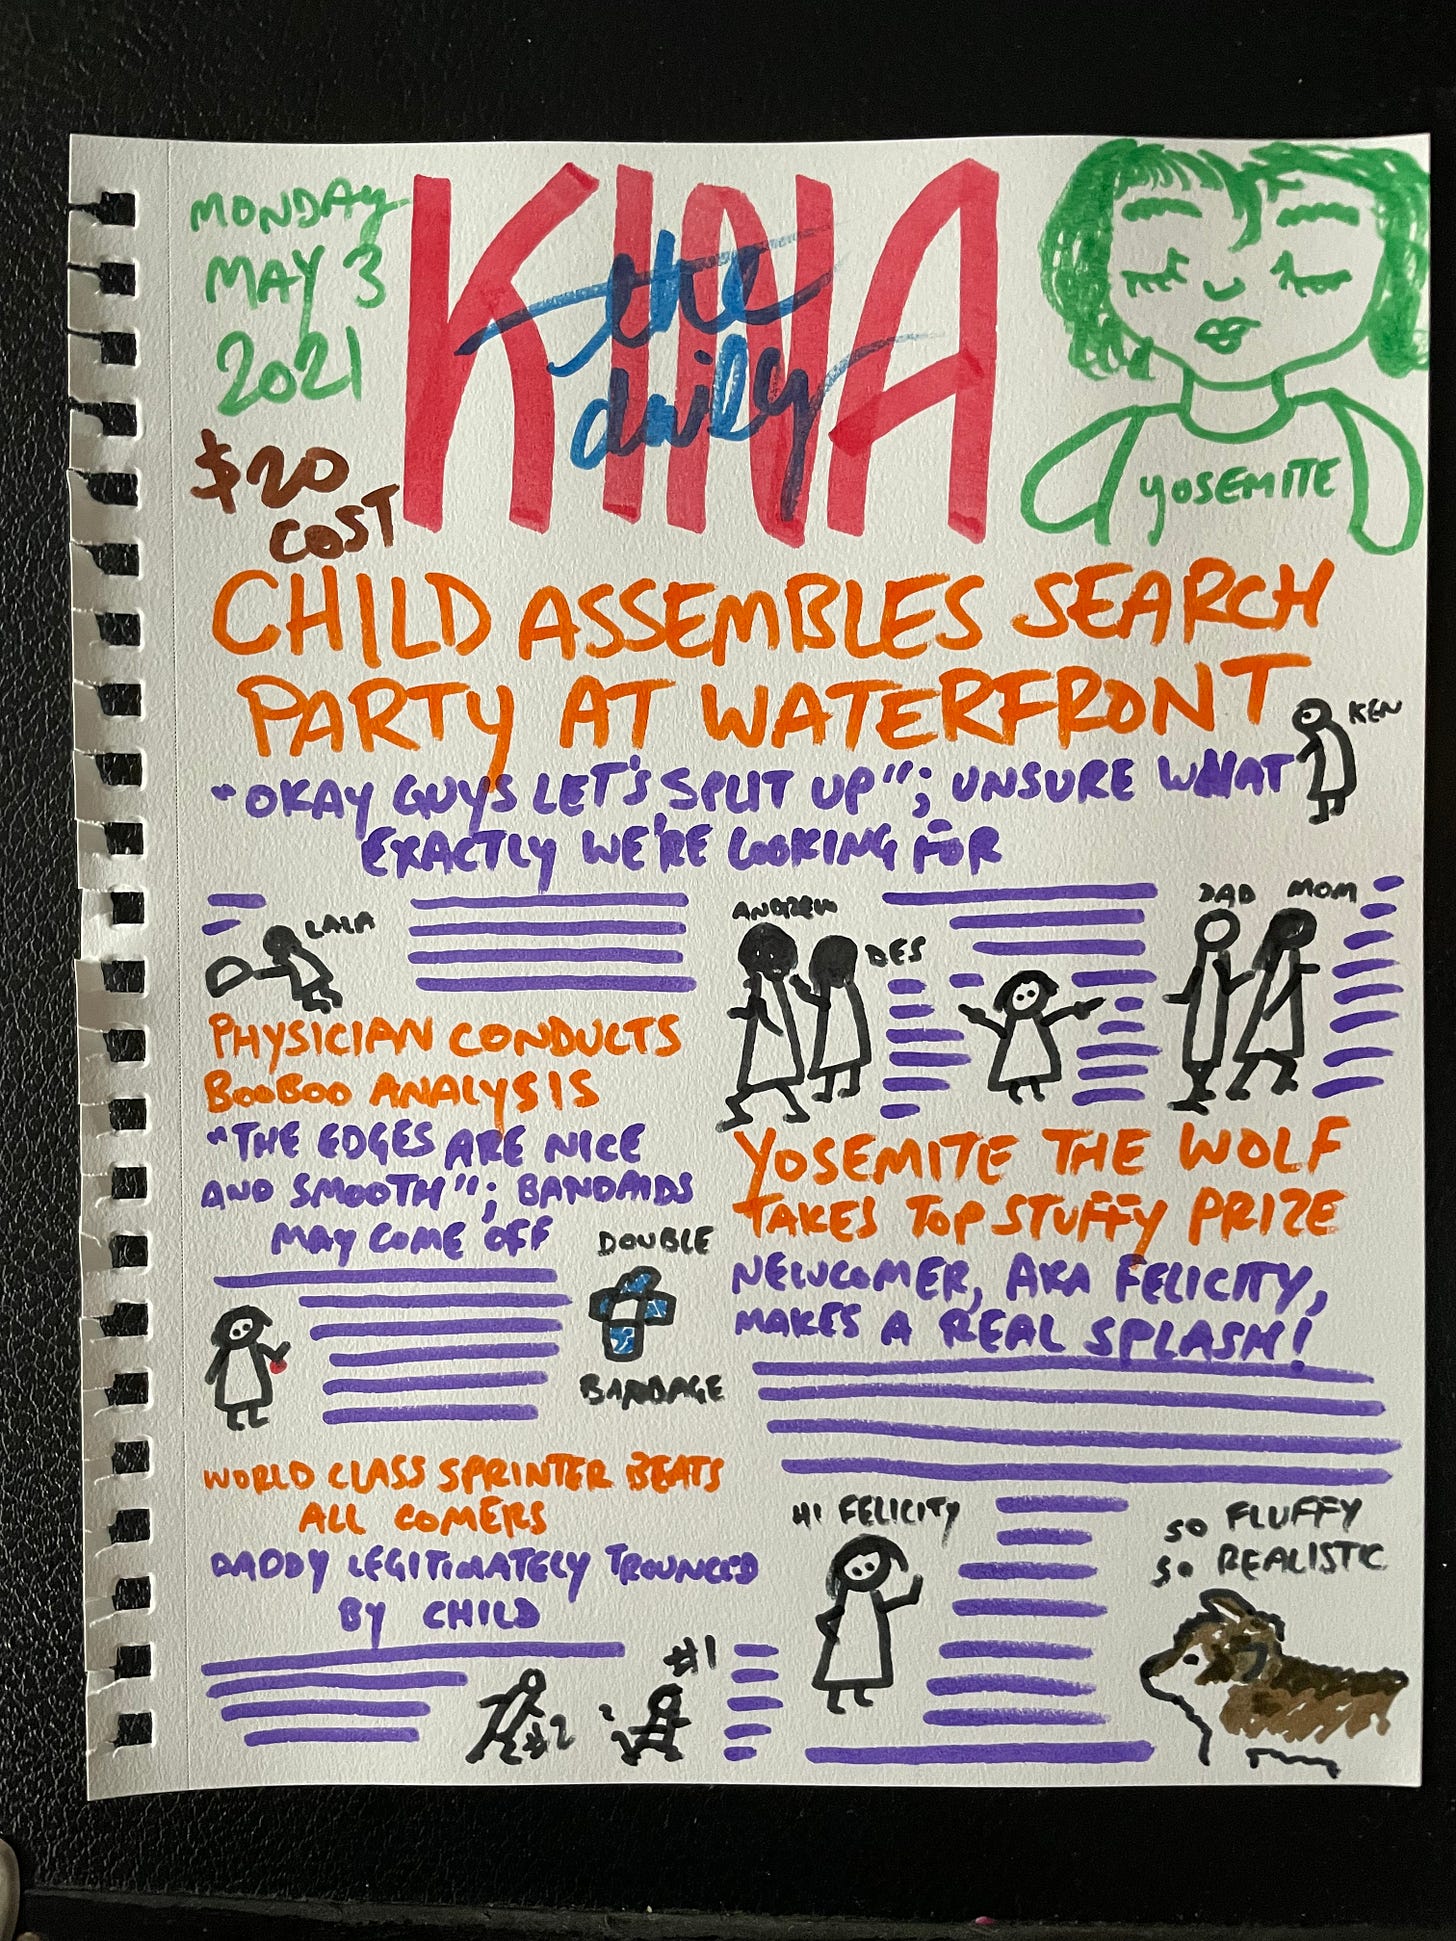 MONDAY
MAY 3
2021
$20
COST
the
daily
KINA
YOSEMITE
CHILD ASSEMBLES SEARCH
PARTY AT WATERFRONT
KEN
"OKAY GUYS LET'S SPLIT UP"; UNSURE WHAT
EXACTLY WE'RE LOOKING FOR
LALA
ANDREW
DES
DAD
MOM
PHYSICIAN CONDUCTS
BOOBOO ANALYSIS
"THE EDGES ARE NICE
AND SMOOTH"; BANDAIDS
MAY COME OFF
DOUBLE
BANDAGE
YOSEMITE THE WOLF
TAKES TOP STUFFY PRIZE
NEWCOMER, AKA FELICITY,
MAKES A REAL SPLASH!
WORLD CLASS SPRINTER BEATS
ALL COMERS
DADDY LEGITIMATELY TROUNCED
BY CHILD
#2
#1
HI FELICITY
SO FLUFFY
SO REALISTIC